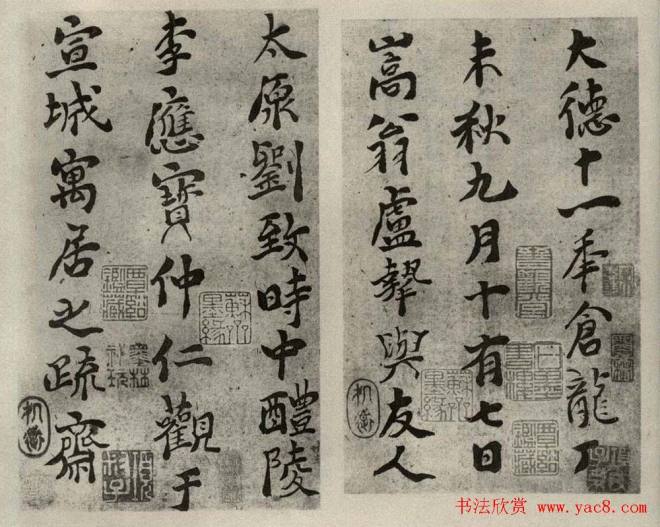 大德十一年倉龍丁
未秋九月十有七日
嵩翁盧摯與友人
太原劉致時中醴陵
李應實仲仁觀于
宣城寓居之疏齋
书法欣赏 www.yac8.com